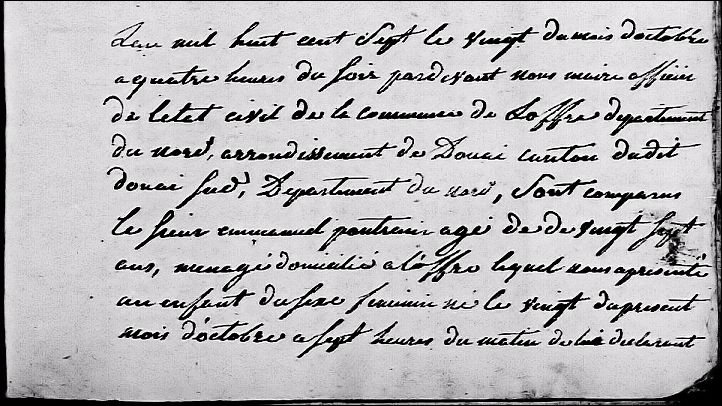 Lan mil huit cent Sept le vingt du mois doctobre
a quatre heures du soir pardevant nous maire officier
de letat civil de la commune de Loffre departement
du nord, arrondissement de Douai canton dudit
douai sud, Departement du nord, sont comparus
le sieur emmanuel pontrain agé de de vingt sept
ans, menagé domicilié a loffre lequel nous a presenté
un enfant du sexe feminin né le vingt du present
mois d'octobre a sept heures du matin de lui declarant